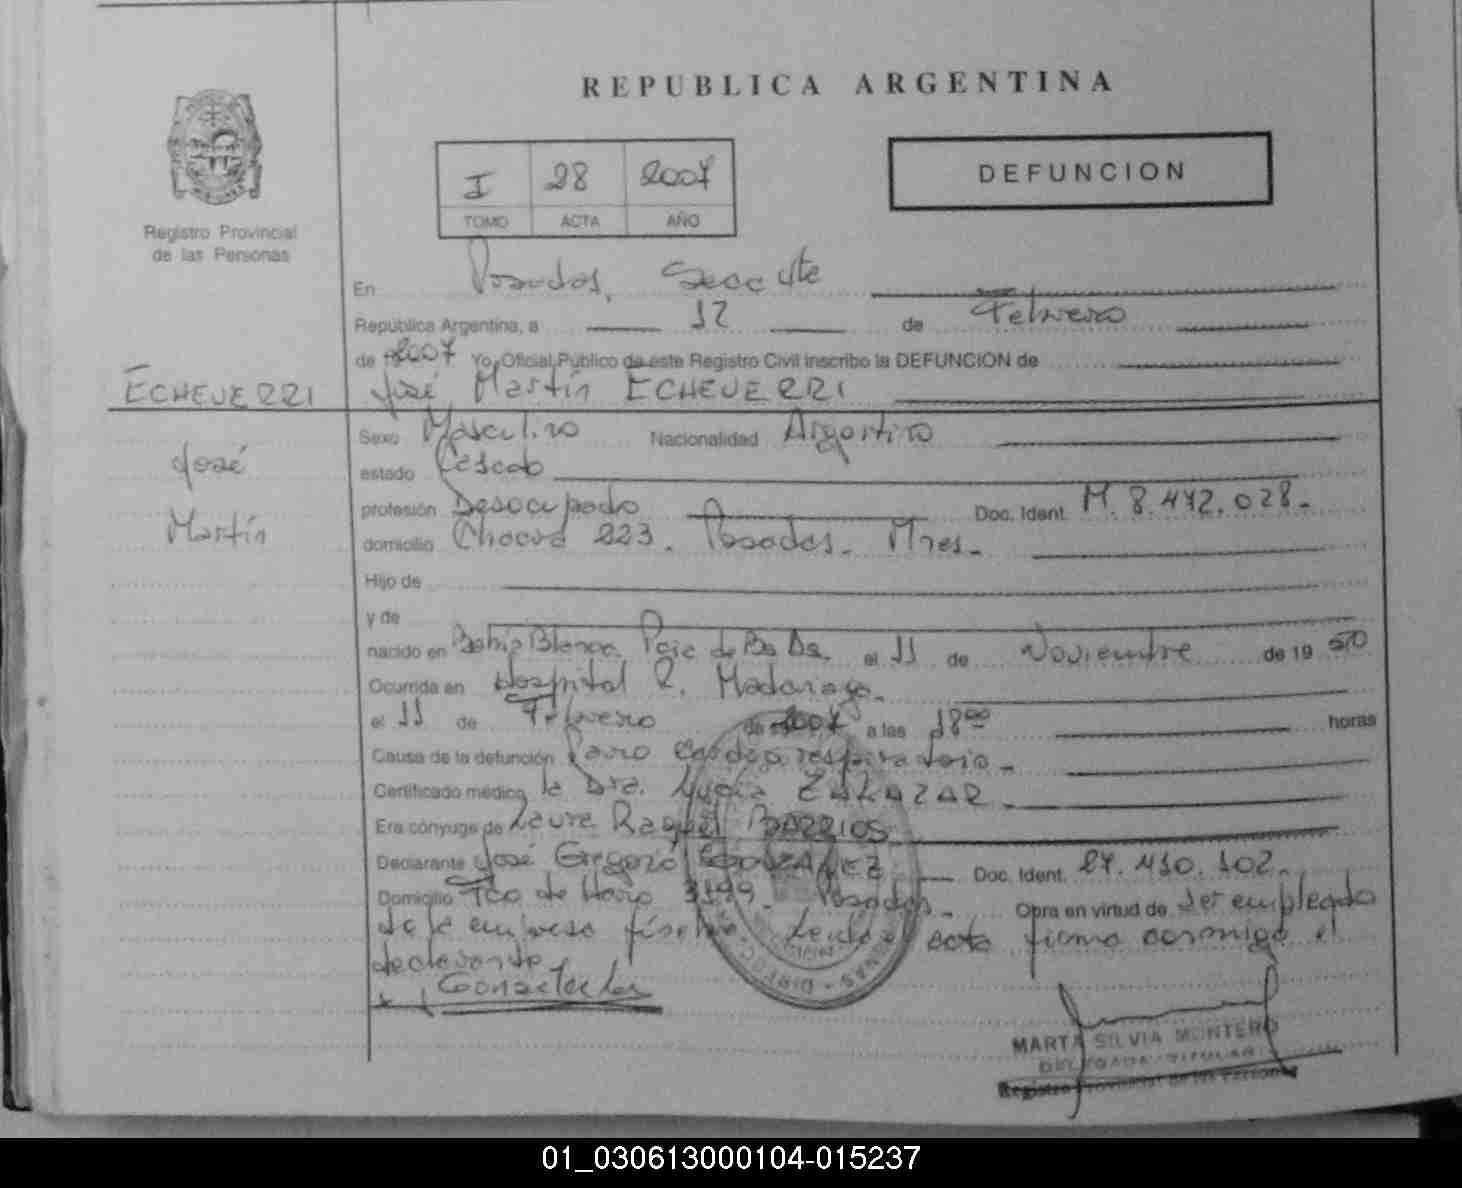 REPUBLICA ARGENTINA
Registro Provincial
de las Personas
I 28 2007
TOMO ACTA AÑO
DEFUNCION
En Posadas, Secc 4te
República Argentina, a 12 de Febrero
de 2007 Yo, Oficial Público de este Registro Civil inscribo la DEFUNCION de
ECHEVERRI
José Martín ECHEVERRI
José
Martín
Sexo Masculino Nacionalidad Argentino
estado Casado
profesión Desocupado Doc. Ident. M. 8.472.028.-
domicilio 223. Posadas. Mnes.-
Hijo de
y de
nacido en Bahía Blanca. Pcia de Bs As. el 11 de Noviembre de 19 50
Ocurrida en Hospital R. Madariaga.-
el 11 de Febrero de 2007 a las 18 00 horas
Causa de la defunción Paro cardio respiratorio.-
Certificado médico la Dra. ZALAZAR.-
Era cónyuge de Laura Raquel BARRIOS
Declarante José Gregorio GONZALEZ Doc. Ident. 27.410.102.-
Domicilio Fco de Haro Posadas.- Obra en virtud de ser empleado
de la empresa Leída el acta firma conmigo el
declarante.
MARTA SILVIA MONTERO
DELEGADA TITULAR
Registro Provincial de las Personas
01_030613000104-015237